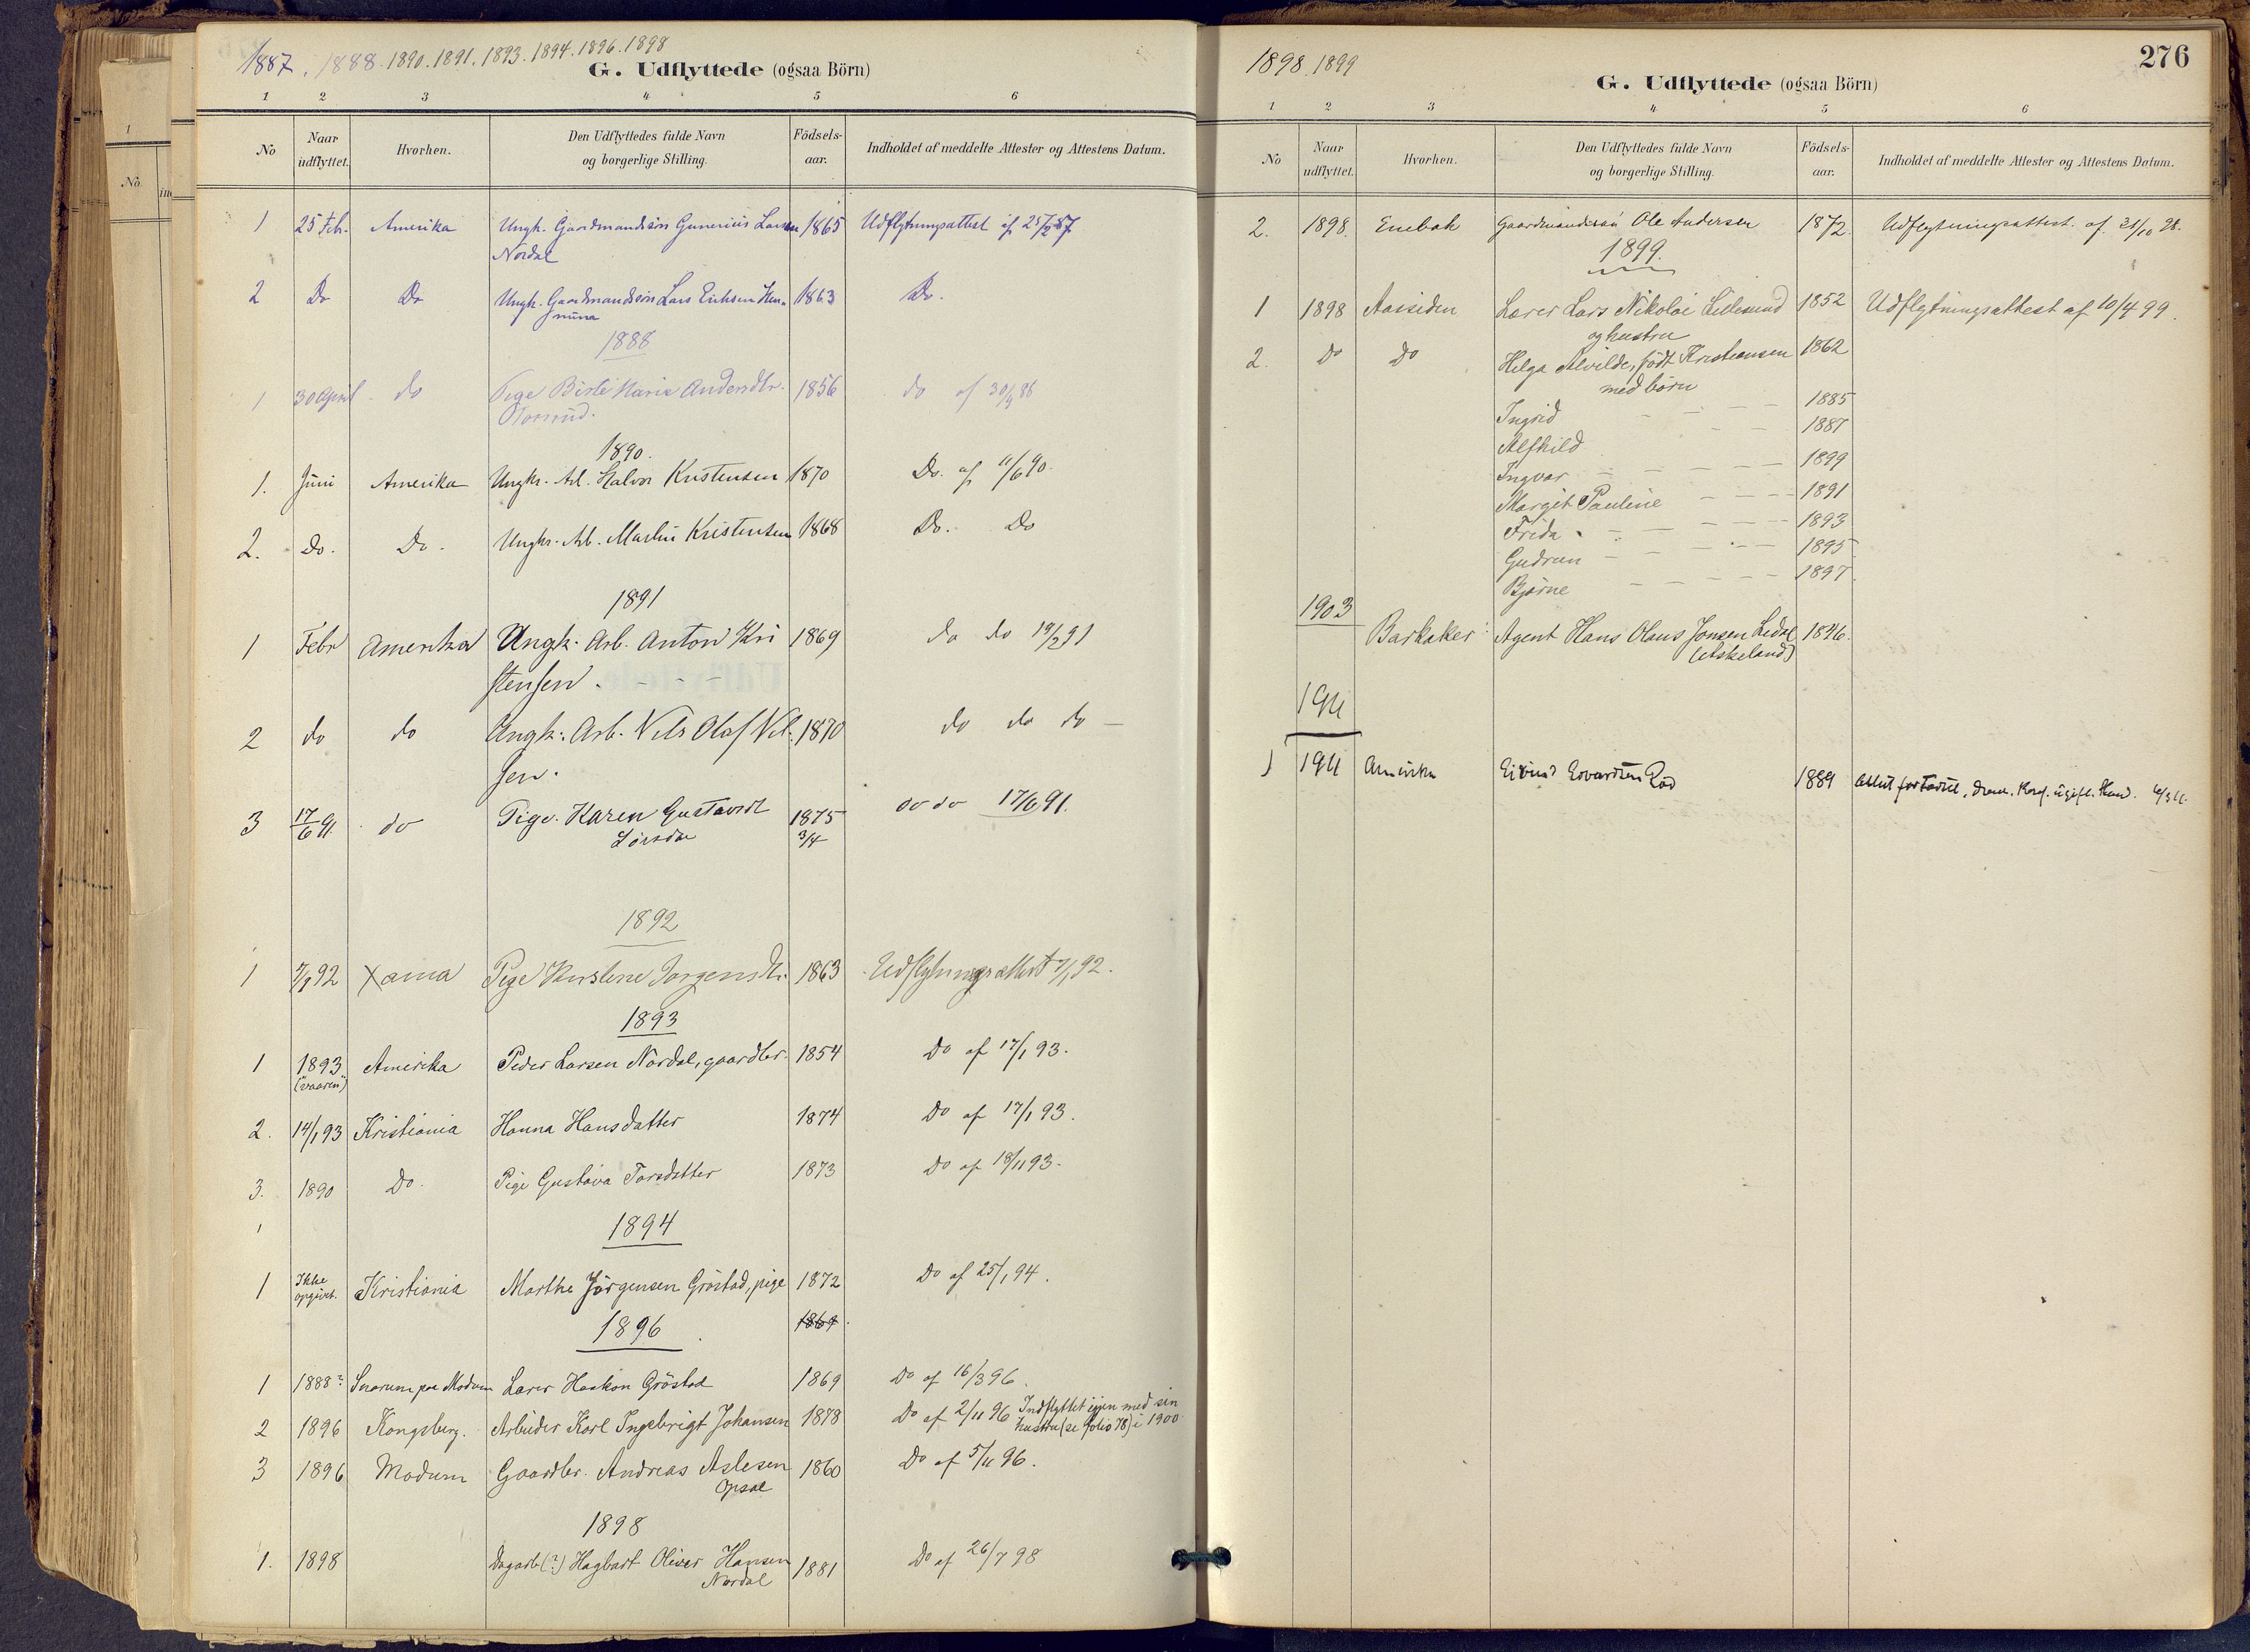 1887. 1888. 1890. 1891. 1893. 1894. 1896. 1898
G. Udflyttede (ogsaa Börn)
1 2 3 4 5 6
No Naar udflyttet. Hvorhen. Den Udflyttedes fulde Navn og borgerlige Stilling. Födsels-aar. Indholdet af meddelte Attester og Attestens Datum.
1 25 Feb. Amerika Ungk. Gaardmandsön Gunerius Larsen 1865 Udflytningsattest af 25/2 87
Nordal
2 Do Do Ungk. Gaardmandsön Lars Eriksen 1863 Do.
1888
1 30 April do Pige Marie Andersdtr. 1856 do af 30/4 88
1890.
1. Juni Amerika Ungk. Arb. Halvor Kristensen 1870 Do. af 11/6 90.
2. Do. Do. Ungk. Arb. Martin Kristensen 1868 Do. Do
1891
1 Febr Amerika Ungk. Arb. Anton Kri 1869 do do 19/2 91
stensen . - - -
2 do do Ungk. Arb. Nils Olaf Nil- 1870 do do do —
sen.
3 17/6 91. do Pige. Karen Gustavsdt 1875 do do 17/6 91.
3/4
1892
1 7/1 92 Xania Pige Kirstine Jørgensdtr. 1863 Udflytningsattest 7/1 92.
1893
1 1893 Amerika Peder Larsen Nordal, gaardbr. 1854 Do af 17/1 93.
("vaaren")
2. 14/1 93 Kristiania Hanna Hansdatter 1874 Do af 17/1 93.
3. 1890 Do. Pige Gustava Torsdatter 1873 Do af 18/11 93.
1894
1 Ikke opgivet. Kristiania Marthe Jörgensen Gröstad, pige 1872 Do af 25/1 94.
1896 1869
1 1888? Snarum paa Modum Lærer Haakon Gröstad 1869 Do af 16/3 96.
2 1896 Kongsberg. Arbeider Karl Ingebrigt Johansen 1878 Do af 2/11 96 Indflyttet igjen med sin
hustru (se folio 78) i 1900
3 1896 Modum Gaardbr. Andreas Aslesen 1860 Do af 5/11 96.
Opsal
1898
1. 1898 Dagarb (?) Hagbart Oliver Hansen 1881 Do af 26/7 98
Nordal
1898. 1899
276
G. Udflyttede (ogsaa Börn)
1 2 3 4 5 6
No Naar udflyttet. Hvorhen. Den Udflyttedes fulde Navn og borgerlige Stilling. Födsels-aar. Indholdet af meddelte Attester og Attestens Datum.
2. 1898. Enebak Gaardmandssøn Ole Andersen 1872. Udflytningsattest. af 31/10 98.
1899.
1 1898 Aassiden Lærer Lars Nikolai Lillesund 1852 Udflytningsattest af 10/4 99.
og hustru
2. Do Do Helga Alvilde, född Kristiansen 1862
med börn
Ingrid - - - 1885
Alfhild - - 1887
Ingvar - - - 1899
Margit Pauline - - - 1891
Frida - - - 1893
Gudrun - - - 1895
Bjarne - - - 1897.
1903
Barkaker Agent Hans Olaus Jonsen Ledal 1846.
(Askeland)
1911
1 1911 Amerika Eivind Edvardsen Rød 1889